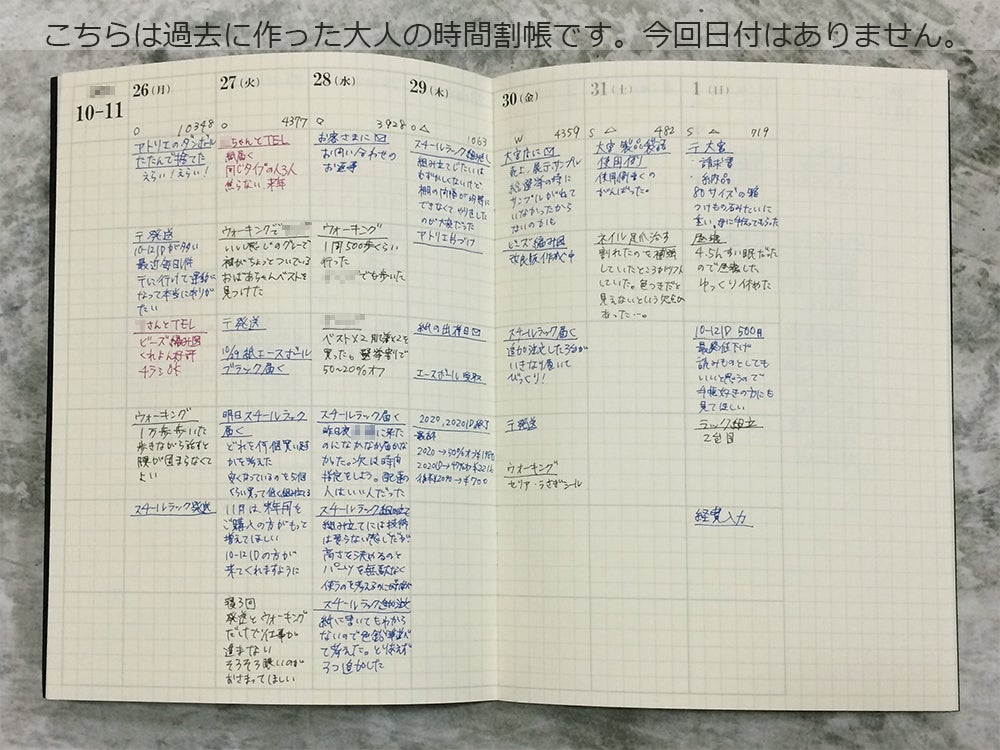 こちらは過去に作った大人の時間割帳です。今回日付はありません。
10-11
26(月)
10348
アトリエのダンボール
たたんで捨てた
えらい!えらい!
〒発送
10-12IDが多い
最近毎日1件
〒に行けて運動に
なって本当にありが
たい
さんとTEL
ビーズ編み図
くれよん好評
4ラ3 OK
ウォーキング
1万歩歩いた
歩きながら話すと
腰が固まらなくて
よい
スチールラック発送
27(火)
4377
ちゃんとTEL
紙届く
同じタイプの人3人
焦らない、来年
ウォーキングで
いい感じのグレーで
裾がちょっとついている
おばあちゃんベストを
見つけた
〒発送
10/29 紙エースボール
ブラック届く
明日スチールラック
届く
どれを何個買い足す
かを考えた
安くなっているのを5個
くらい買って低く組み立てる
11月は、来年用を
ご購入の方がもって
増えてほしい
10-12IDの方が
来てくれますように
寝3回
発送とウォーキング
だけで仕事が
進まない
そろそろ眠いのが
おさまってほしい
28(水)
3928
お客さまに✉
お問い合わせの
お返事
ウォーキング
1周500歩くらい
行った
でも歩いた
ベスト×2 肌着×2を
買った。選挙割で
50~20%オフ
スチールラック届く
昨日夜 に来た
のになかなか届かな
かった。次は時間
指定をしよう。配達の
人はいい人だった
スチールラック組み立て
組み立てには技術
は要らない感じだが
高さを決めるのと
パーツを無駄なく
使うのを考えるのに時間が
スチールラック追加注文
紙に書いてもわから
ないので色鉛筆並べ
て考えた。とりあえず
3つ追加した
29(木)
1063
スチールラック組み立て
組み立てじたいは
むずかしくないけど
棚の間隔が均等に
できなくて、やり直した
のが大変だった
アトリエ片づけ
紙の出荷日✉
エースボール受取
2020、2020ID終了
最終
2020→50%オフ
30(金)
W
4359
大宮たに✉
売上、展示サンプル
総選挙の時に
サンプルが出て
いなかったから
ないのかも
ビーズ編み図
改良版作成中
スチールラック届く
追加注文した3台が
いきなり届いて
びっくり!
〒発送
ウォーキング
セリア・うさぎシール
31(土)
S
482
大宮製品発送
使用例
使用例書くの
がんばった。
ネイル足爪治す
割れたのを補強
していたところがリフト
していた。色つきだと
見えないという欠点が
あった…。
1(日)
S
719
〒大宮
・請求書
・納品書
80サイズの箱
つけもの石みたいに
重い、母に手伝ってもらった
昼寝
4.5hすい眠だった
ので昼寝した
ゆっくり休めた
10-12ID 500円
最終値下げ
読みものとしても
いいと思うので
手帳好きの方にも
見てほしい
ラック組立
2台目
経費入力